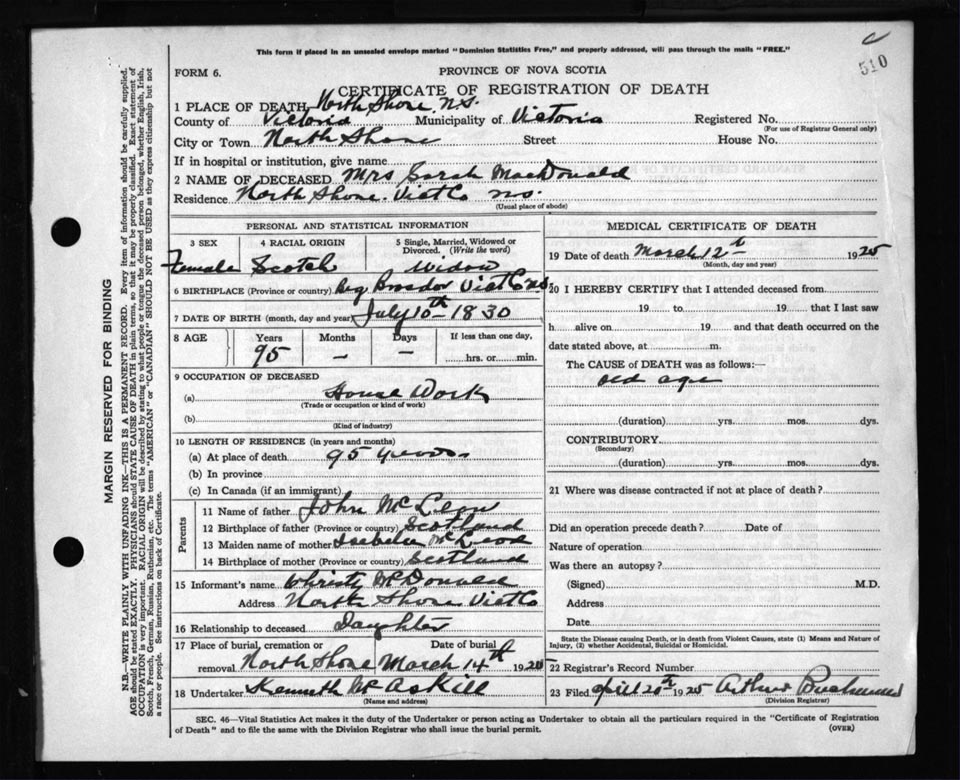 This form if placed in an unsealed envelope marked "Dominion Statistics Free," and properly addressed, will pass through the mails "FREE."
510
FORM 6.
PROVINCE OF NOVA SCOTIA
CERTIFICATE OF REGISTRATION OF DEATH
1 PLACE OF DEATH North Shore N.S.
County of Victoria Municipality of Victoria Registered No.
(For use of Registrar General only)
City or Town North Shore Street House No.
If in hospital or institution, give name
2 NAME OF DECEASED Mrs Sarah MacDonald
Residence North Shore. Vict Co N.S.
(Usual place of abode)
PERSONAL AND STATISTICAL INFORMATION
3 SEX 4 RACIAL ORIGIN 5 Single, Married, Widowed or Divorced. (Write the word)
Female Scotch Widow
6 BIRTHPLACE (Province or country) Vict Co N.S.
7 DATE OF BIRTH (month, day and year) July 10th 1830
8 AGE Years Months Days If less than one day,
95 — — hrs. or min.
9 OCCUPATION OF DECEASED
(a) House Work
(Trade or occupation or kind of work)
(b)
(Kind of industry)
10 LENGTH OF RESIDENCE (in years and months)
(a) At place of death 95 years
(b) In province
(c) In Canada (if an immigrant)
Parents
11 Name of father John McLeod
12 Birthplace of father (Province or country) Scotland
13 Maiden name of mother Isabella McLeod
14 Birthplace of mother (Province or country) Scotland
15 Informant's name Christy McDonald
Address North Shore Vict Co
16 Relationship to deceased Daughter
17 Place of burial, cremation or removal Date of burial
North Shore March 14th 1925
18 Undertaker Kenneth McAskill
(Name and address)
MEDICAL CERTIFICATE OF DEATH
19 Date of death March 12th 1925
(Month, day and year)
20 I HEREBY CERTIFY that I attended deceased from
19 to 19 that I last saw
h alive on 19 and that death occurred on the
date stated above, at m.
The CAUSE OF DEATH was as follows:—
old age
(duration) yrs. mos. dys.
CONTRIBUTORY
(Secondary)
(duration) yrs. mos. dys.
21 Where was disease contracted if not at place of death?
Did an operation precede death? Date of
Nature of operation
Was there an autopsy?
(Signed) M.D.
Address
Date
State the Disease causing Death, or in death from Violent Causes, state (1) Means and Nature of
Injury, (2) whether Accidental, Suicidal or Homicidal.
22 Registrar's Record Number
23 Filed April 20th 1925 Arthur
(Division Registrar)
SEC. 46—Vital Statistics Act makes it the duty of the Undertaker or person acting as Undertaker to obtain all the particulars required in the "Certificate of Registration
of Death" and to file the same with the Division Registrar who shall issue the burial permit. (OVER)
MARGIN RESERVED FOR BINDING
N.B.—WRITE PLAINLY WITH UNFADING INK—THIS IS A PERMANENT RECORD. Every item of information should be carefully supplied.
AGE should be stated EXACTLY. PHYSICIANS should STATE CAUSE OF DEATH in plain terms, so that it may be properly classified. Exact statement of
OCCUPATION is very important. RACIAL ORIGIN will be described by stating to what people or tongue the deceased person belonged, whether English, Irish,
Scotch, French, German, Russian, Ruthenian, etc. The terms "AMERICAN" or "CANADIAN" SHOULD NOT BE USED as they express citizenship but not
a race or people. See instructions on back of Certificate.